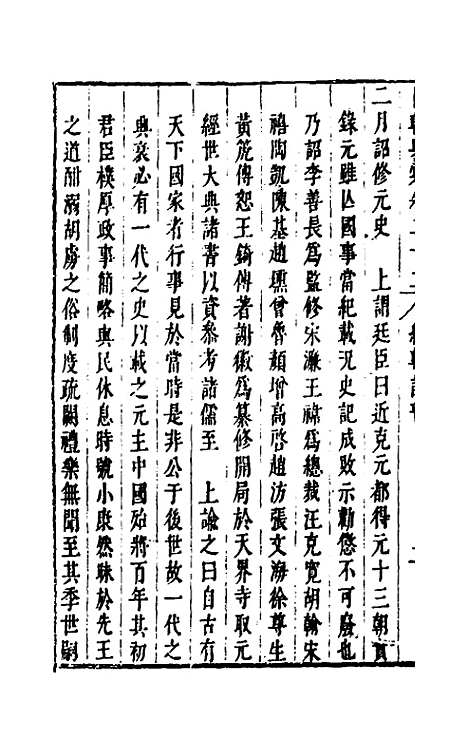 二月詔修元史　上謂廷臣曰近克元都得元十三朝實
錄元雖亾國事當紀載況史記成敗示勸懲不可廢也
乃詔李善長爲監修宋濂王禕爲總裁汪克寬胡翰宋
禧陶凱陳基趙壎曾魯趙汸張文海徐尊生
黃箎傅恕王錡傅著謝徽爲纂修開局於天界寺取元
經世大典諸書以資叅考諸儒至　上諭之曰自古有
天下國家者行事見於當時是非公于後世故一代之
興衰必有一代之史以載之元主中國殆將百年其初
君臣樸厚政事簡略與民休息時號小康然昧於先王
之道酣溺胡虜之俗制度疏闊禮樂無聞至其季世嗣